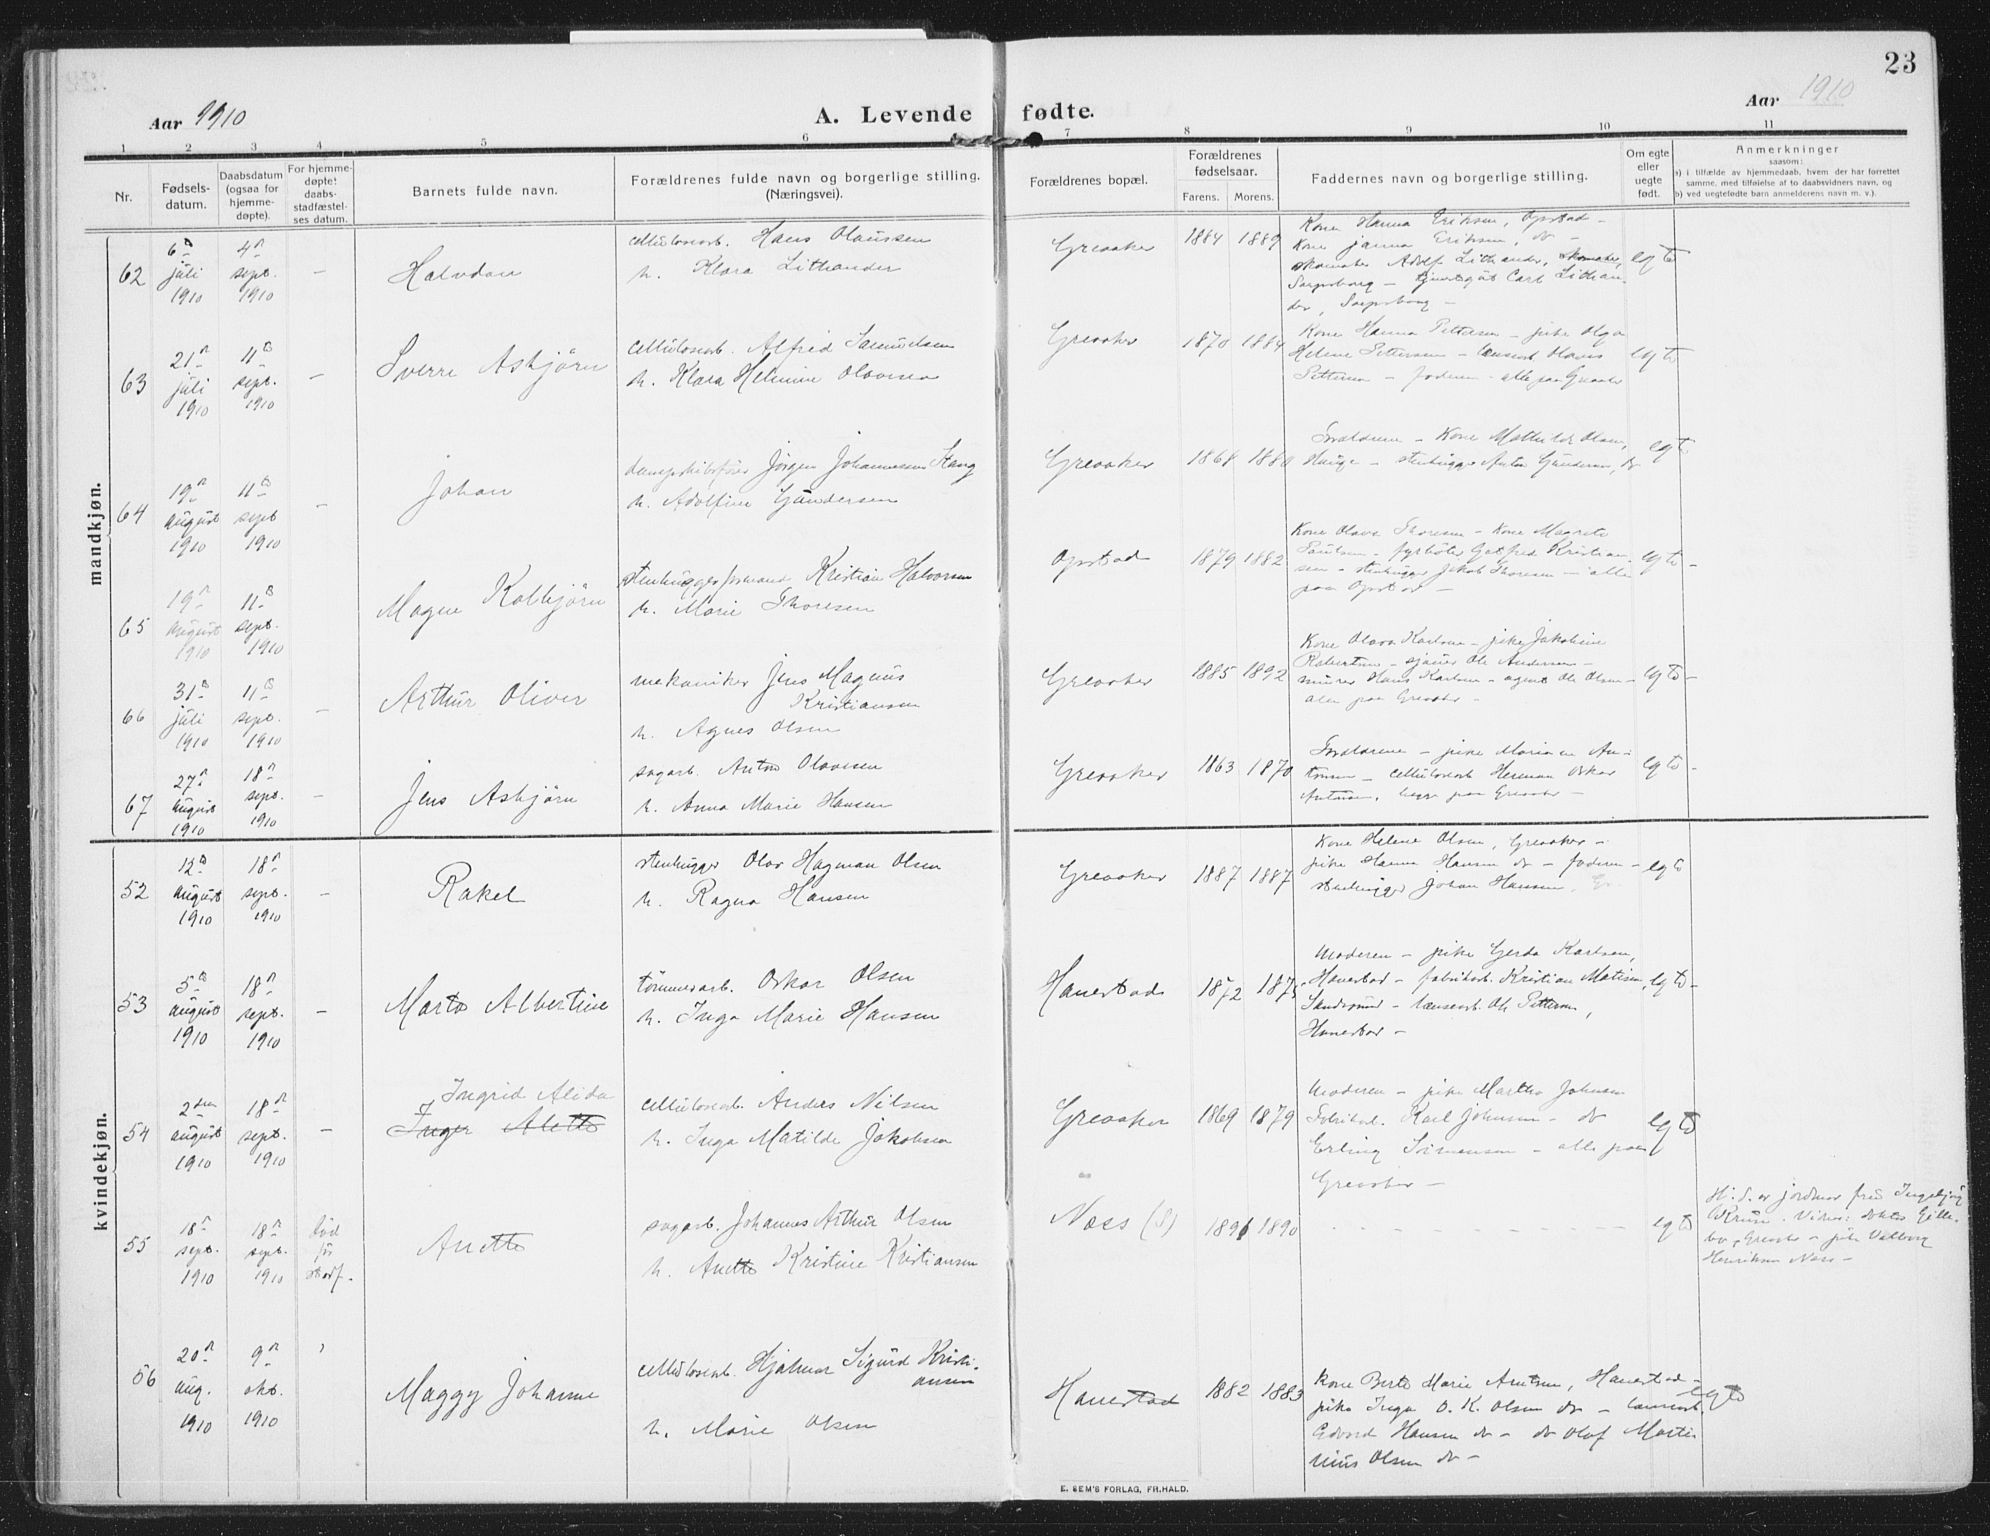 23
Aar 1910
A. Levende fødte.
Aar 1910
1 2 3 4 5 6 7 8 9 10 11
Nr.
Fødsels-
datum.
Daabsdatum
(ogsaa for
hjemme-
døpte).
For hjemme-
døpte:
daabs-
stadfæstel-
ses datum.
Barnets fulde navn.
Forældrenes fulde navn og borgerlige stilling.
(Næringsvei).
Forældrenes bopæl.
Forældrenes
fødselsaar.
Farens. Morens.
Faddernes navn og borgerlige stilling.
Om egte
eller
uegte
født.
Anmerkninger
saasom:
a) i tilfælde av hjemmedaab, hvem der har forrettet
samme, med tilføielse af to daabsvidners navn, og
b) ved uegtefødte børn anmelderens navn m. v.).
mandkjøn.
62
6te
juli
1910
4de
sept.
1910
—
Halvdan
cellulosearb. Hans Olaussen
h. Klara Lithander
Greaaker
1884 1889
Kone Hanna Eriksen, Opstad —
Kone Janna Eriksen, do —
skomaker Adolf Lithander,
Sarpsborg — Carl Lithan-
der, Sarpsborg —
egte
63
21de
juli
1910
11te
sept.
1910
—
Sverre Asbjørn
cellulosearb. Alfred Samuelsen
h. Klara Helmine Olavesen
Greaaker
1870 1884
Kone Hanna Pettersen — pike Olga
Helene Pettersen — lænsearb. Olaves
Pettersen — faderen — alle paa Greaaker
egte
64
19de
august
1910
11te
sept
1910
—
Johan
dampskibsfører Jørgen Johannesen Stang
h. Adolfine Gundersen
Greaaker
1868 1880
Forældrene — Kone Mathilde Olsen,
Hauge — stenhugger Anton Gundersen, do
egte
65
19de
august
1910
11te
sept.
1910
Magne Kolbjørn
stenhuggerformand Kristian Halvorsen
h. Marie Thoresen
Opstad
1879 1882
Kone Olava Thoresen — Kone Magrete
Paulsen — fyrbøter Gotfred Kristian-
sen — stenhugger Jakob Thoresen — alle
paa Opstad —
egte —
66
31te
juli
1910
11te
sept.
1910
—
Arthur Oliver
mekaniker Jens Magnus
Kristiansen
h. Agnes Olsen
Greaaker
1885 1892
Kone Olava Karlsen — pike Jakobine
Robertsen — sjauer Ole Andersen —
murer Hans Karlsen — agent Ole Olsen —
alle paa Greaaker —
egte —
67
27de
august
1910
18de
sept.
1910
—
Jens Asbjørn
sagarb. Anton Olavesen
h. Anna Marie Hansen
Greaaker
1863 1870
Forældrene — pike Mariane An-
tonsen — cellulosearb Herman Oskar
Antonsen, begge paa Greaaker —
egte —
kvindekjøn.
52
12te
august
1910
18de
sept.
1910
—
Rakel
stenhugger Olav Hagman Olsen
h. Ragna Hansen
Greaaker
1887 1887
Kone Helene Olsen, Greaaker —
pike Hanna Hansen do — faderen —
stenhugger Johan Hansen,
egte
53
5te
august
1910
18de
sept.
1910
—
Marta Albertine
tømmerarb. Oskar Olsen
h. Inga Marie Hansen
Hanestad
1872 1875
Moderen — pike Gerda Karlsen,
Hanestad — fabrikarb. Kristian Matisen,
Sandesund — lænsearb. Ole Pettersen,
Hanestad —
egte —
54
2den
august
1910
18de
sept.
1910
—
Ingrid Alida
Inger Alette
cellulosearb. Anders Nilsen
h. Inga Matilde Jakobsen
Greaaker
1869 1879
Moderen — pike Martha Johnsen
Fabrikarb. Karl Johnsen — do
Erling Simensen — alle paa
Greaaker —
egte
55
18de
sept.
1910
18de
sept.
1910
død
før
stadf.
Anette
sagarb. Johannes Arthur Olsen
h. Anette Kristine Kristiansen
Næss (S)
1891 1890
— — — — — — —
egte
H. d. av jordmor frk Ingebjørg
Kruse. Vidner: doktor Gille-
bo, Greaaker — pike Valborg
Henriksen Næss —
56
20de
aug.
1910
9de
okt.
1910
Maggy Johanne
cellulosearb. Hjalmar Sigurd Kristi-
ansen
h. Marie Olsen
Hanestad
1882 1883
Kone Berte Marie Arntsen, Hanestad —
pike Inga O. K. Olsen do — lænsearb.
Edvard Hansen do — do Olaf Marti-
nius Olsen do —
egte
E. SEM'S FORLAG, FR.HALD.